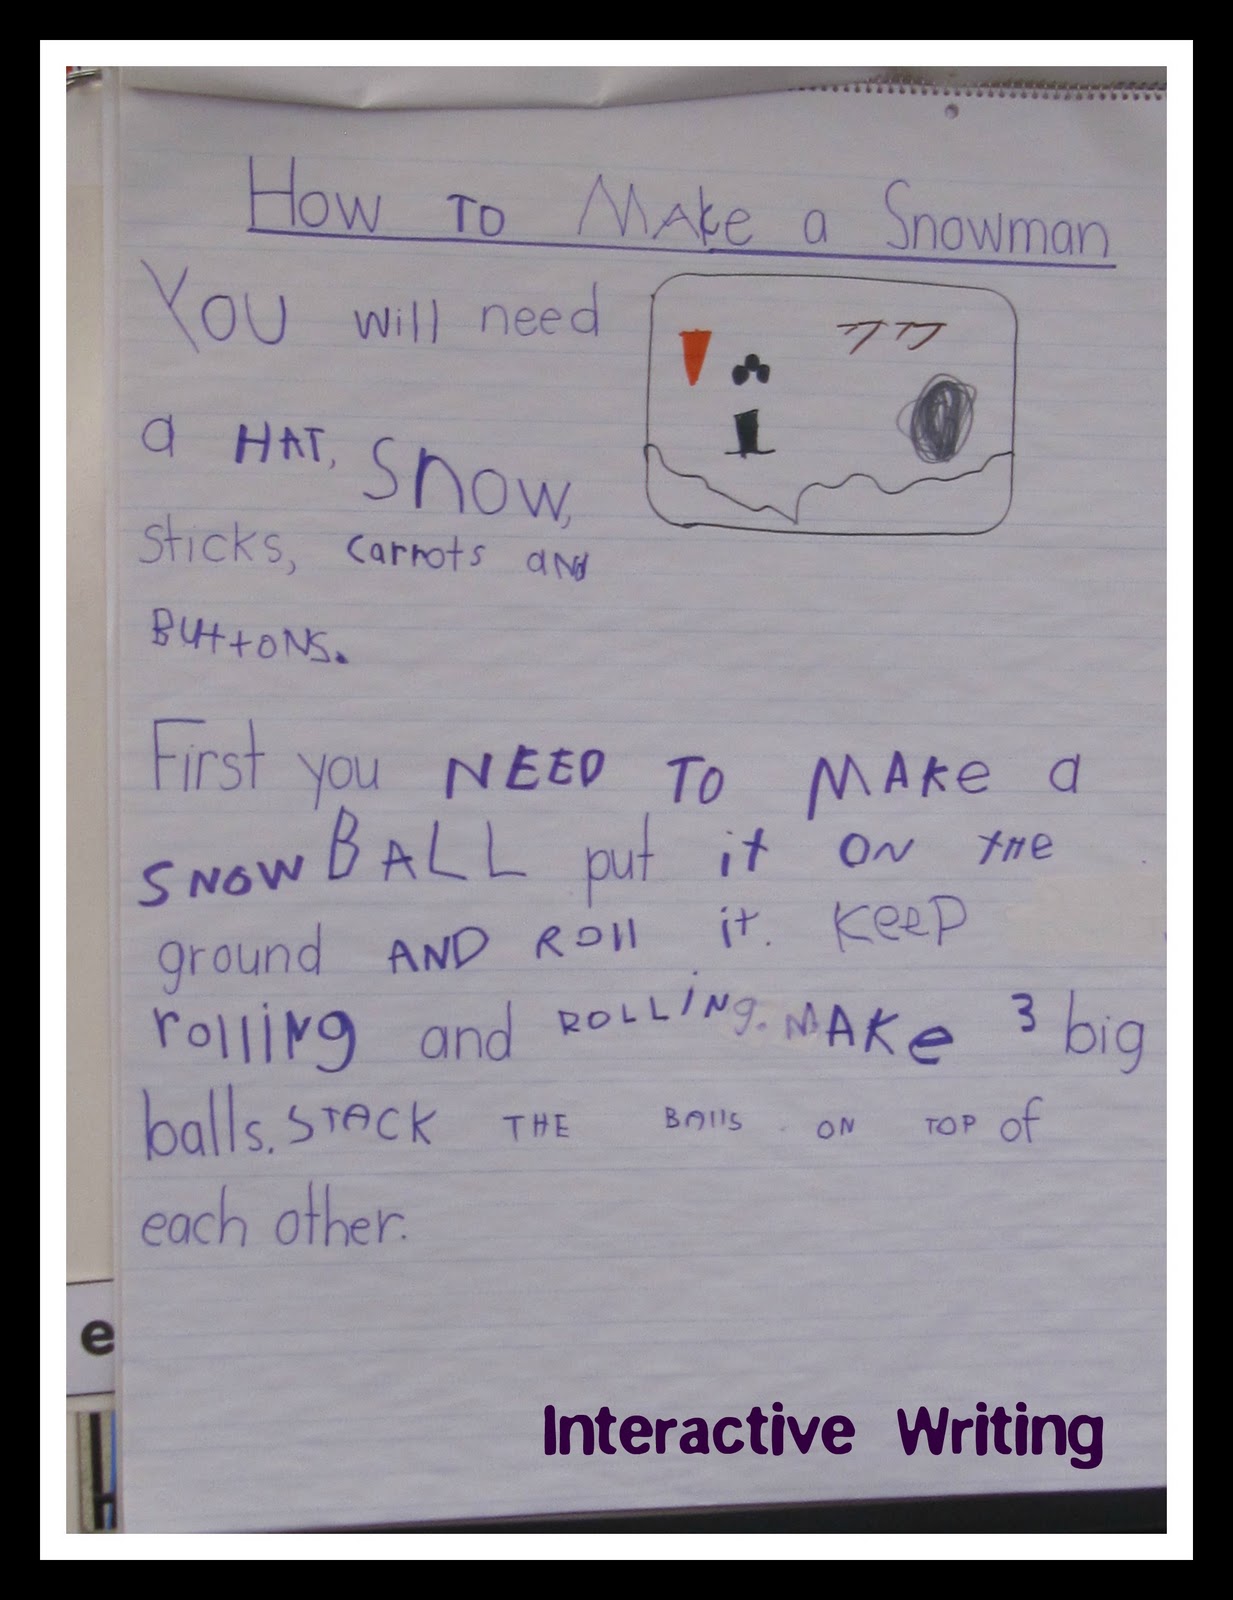 How TO MAke a Snowman
YOU will need
a HAT, Snow,
sticks, carrots aND
BUttONS.
First you NEED TO MAKe a
SNOWBALL put it ON tHe
ground AND ROll it. KeeP
rolliNg and ROLLiNg. MAKe 3 big
balls. STACK THE BAlls ON TOP of
each other.
e
Interactive Writing